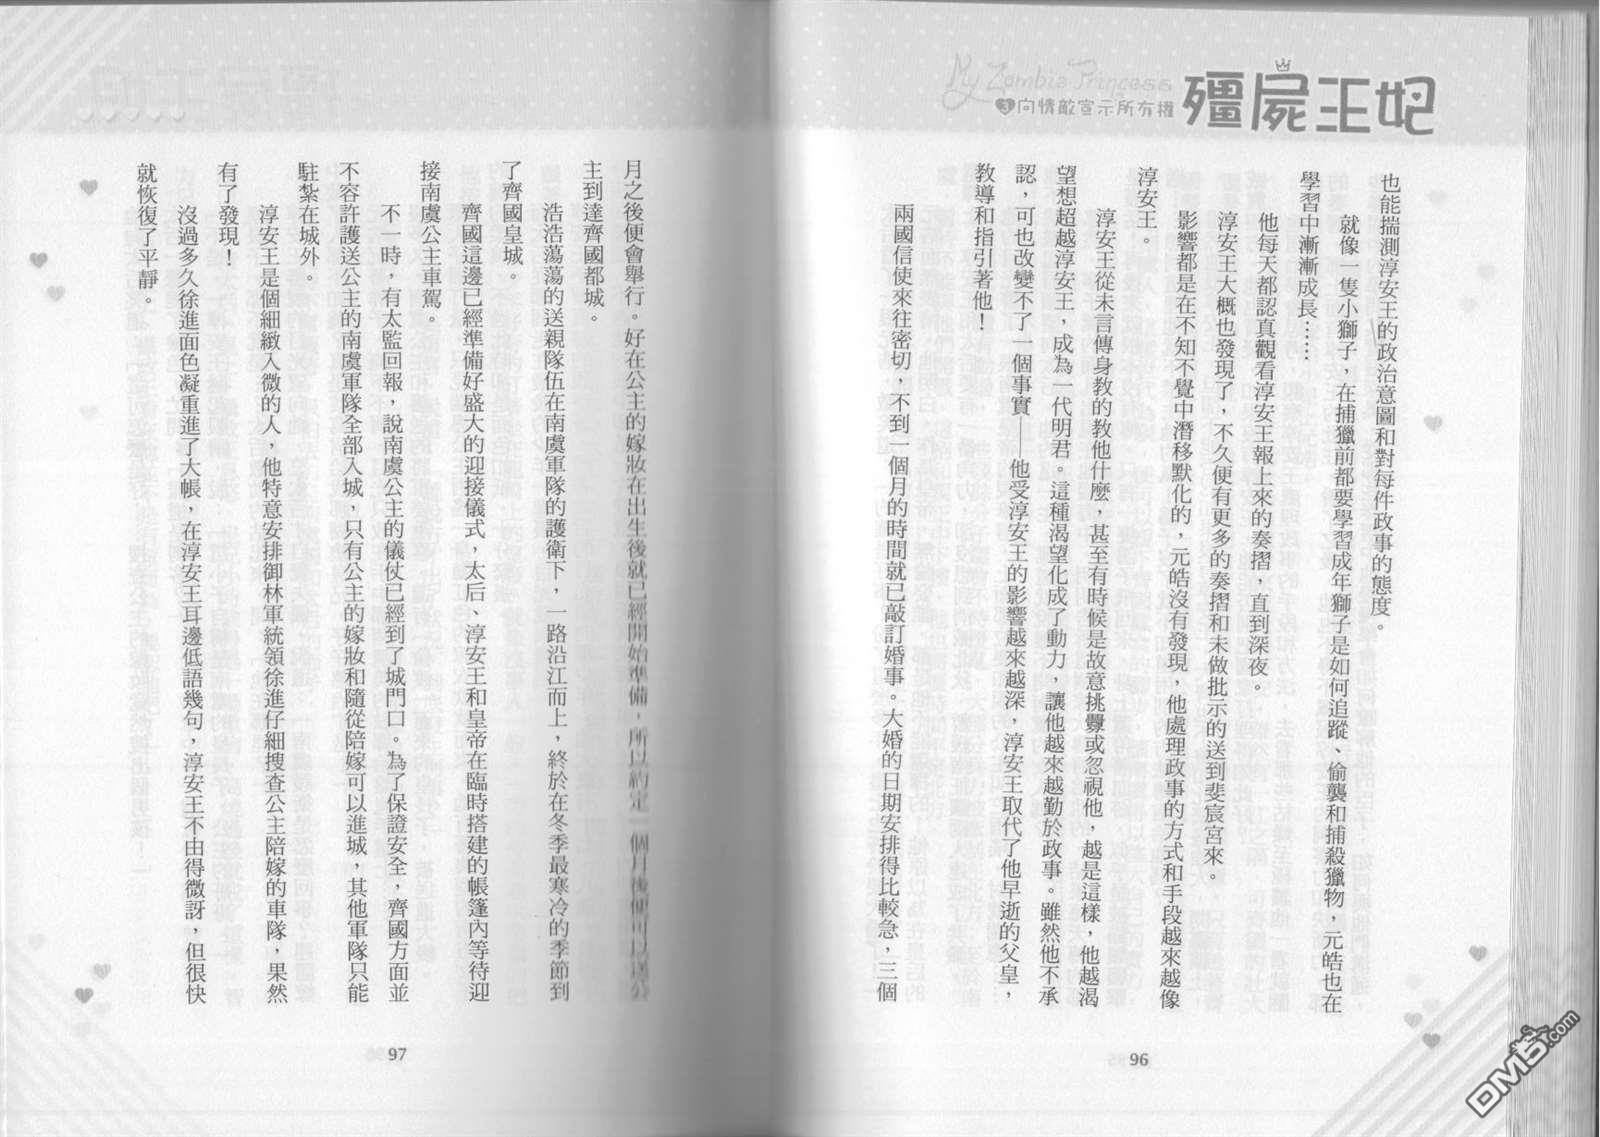 My Zombie Princess
❸向情敵宣示所有權
殭屍王妃
也能揣測淳安王的政治意圖和對每件政事的態度。
就像一隻小獅子，在捕獵前都要學習成年獅子是如何追蹤、偷襲和捕殺獵物，元皓也在
學習中漸漸成長……
他每天都認真觀看淳安王報上來的奏摺，直到深夜。
淳安王大概也發現了，不久便有更多的奏摺和未做批示的送到斐宸宮來。
影響都是在不知不覺中潛移默化的，元皓沒有發現，他處理政事的方式和手段越來越像
淳安王。
淳安王從未言傳身教的教他什麼，甚至有時候是故意挑釁或忽視他，越是這樣，他越渴
望想超越淳安王，成為一代明君。這種渴望化成了動力，讓他越來越勤於政事。雖然他不承
認，可也改變不了一個事實——他受淳安王的影響越來越深，淳安王取代了他早逝的父皇，
教導和指引著他！
兩國信使來往密切，不到一個月的時間就已敲訂婚事。大婚的日期安排得比較急，三個
96
月之後便會舉行。好在公主的嫁妝在出生後就已經開始準備，所以約定一個月後便可以送公
主到達齊國都城。
浩浩蕩蕩的送親隊伍在南虞軍隊的護衛下，一路沿江而上，終於在冬季最寒冷的季節到
了齊國皇城。
齊國這邊已經準備好盛大的迎接儀式，太后、淳安王和皇帝在臨時搭建的帳篷內等待迎
接南虞公主車駕。
不一時，有太監回報，說南虞公主的儀仗已經到了城門口。為了保證安全，齊國方面並
不容許護送公主的南虞軍隊全部入城，只有公主的嫁妝和隨從陪嫁可以進城，其他軍隊只能
駐紮在城外。
淳安王是個細緻入微的人，他特意安排御林軍統領徐進仔細搜查公主陪嫁的車隊，果然
有了發現！
沒過多久徐進面色凝重進了大帳，在淳安王耳邊低語幾句，淳安王不由得微訝，但很快
就恢復了平靜。
97
DM5.com